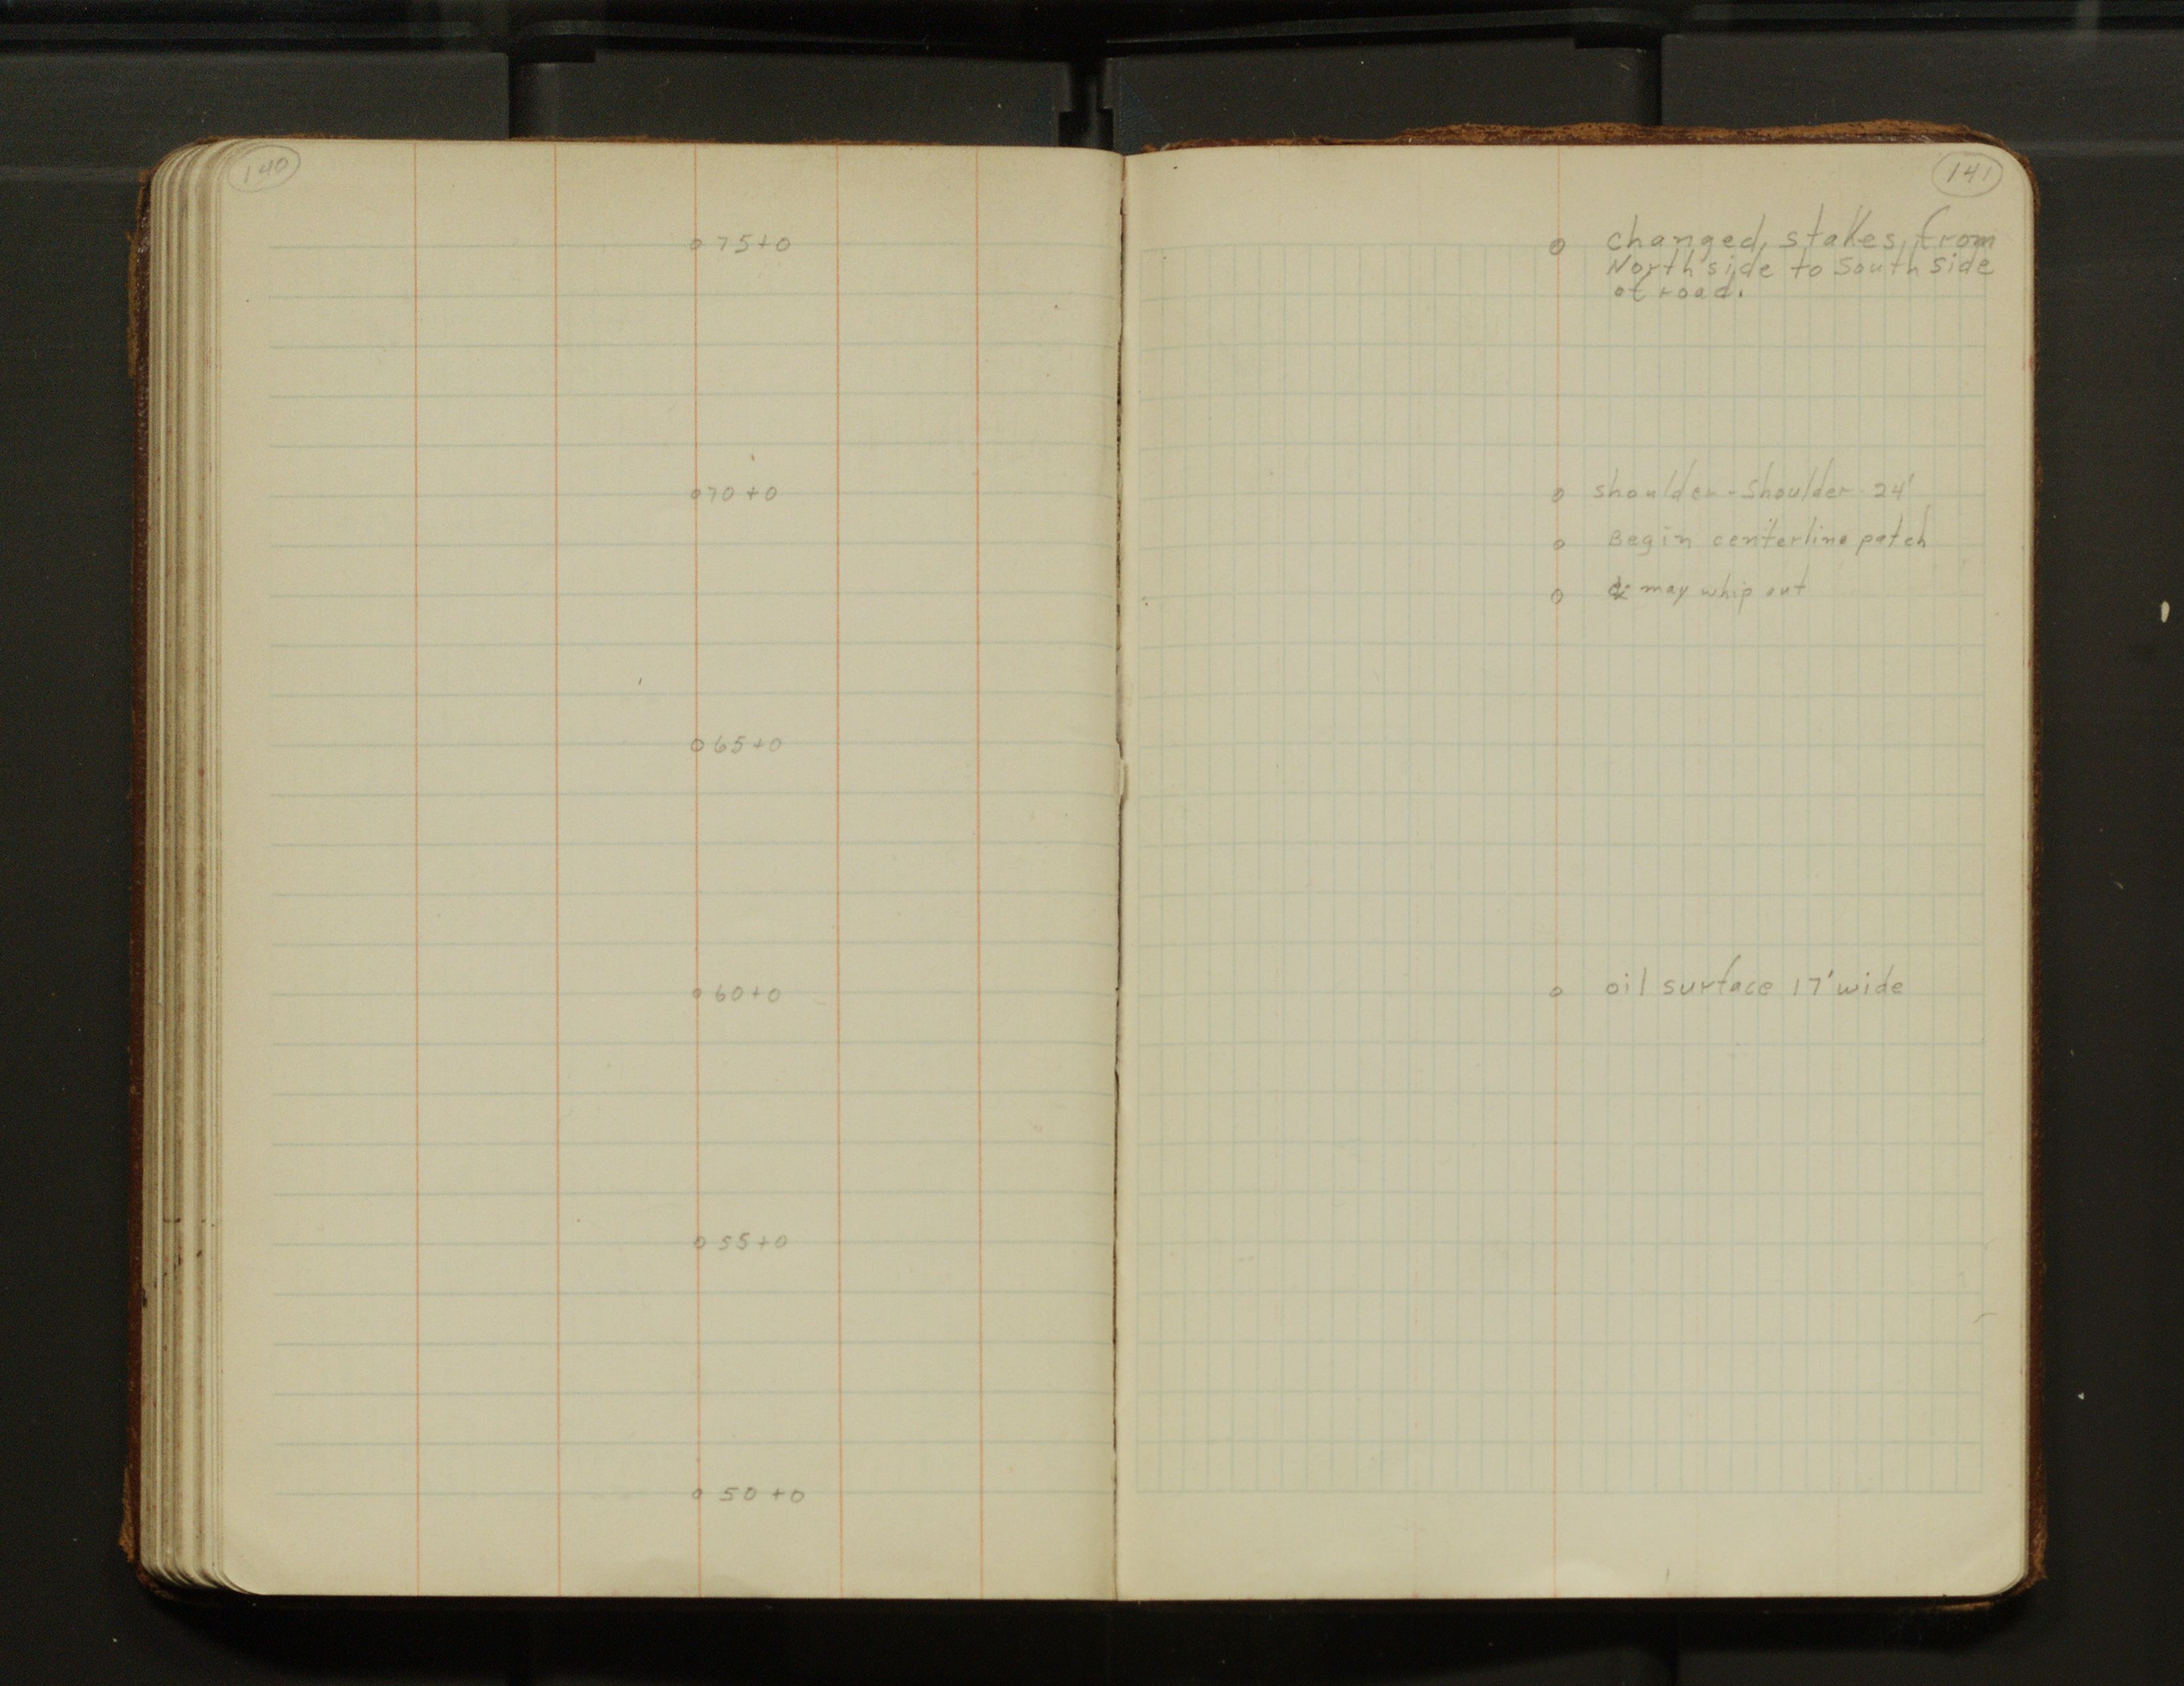 140
o 75+0
o 70+0
o 65+0
o 60+0
o 55+0
o 50+0
141
o changed stakes from
North side to South side
of road.
o shoulder - Shoulder 24'
o Begin centerline patch
o & may whip out
o oil surface 17' wide